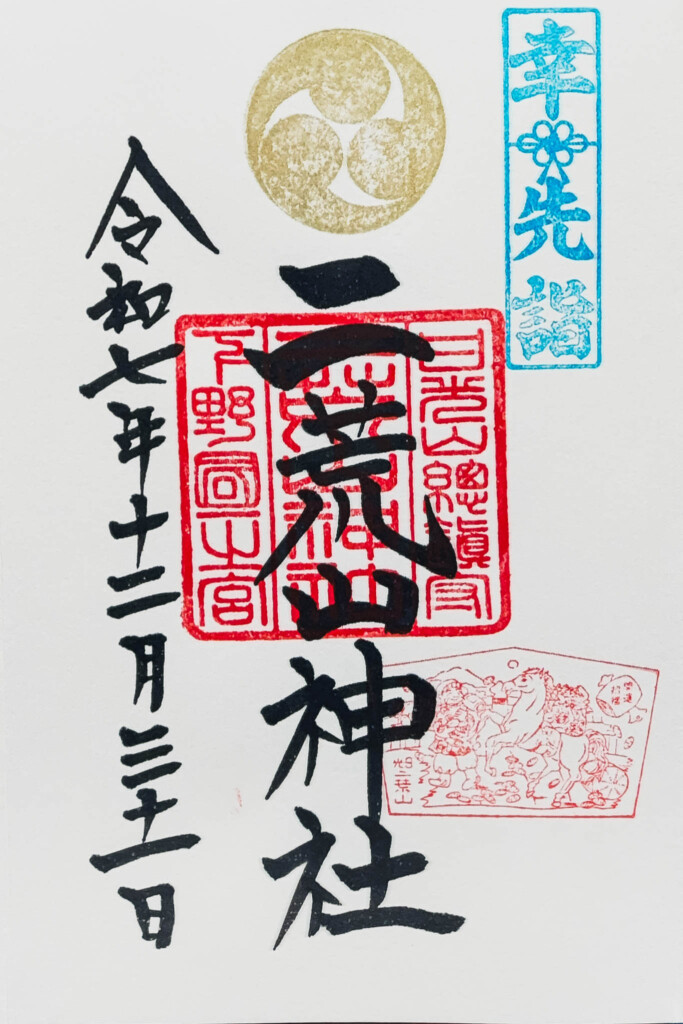 幸先詣
日光山總鎮守
二荒山神社
下野國一之宮
令和七年十二月三十一日
日光二荒山